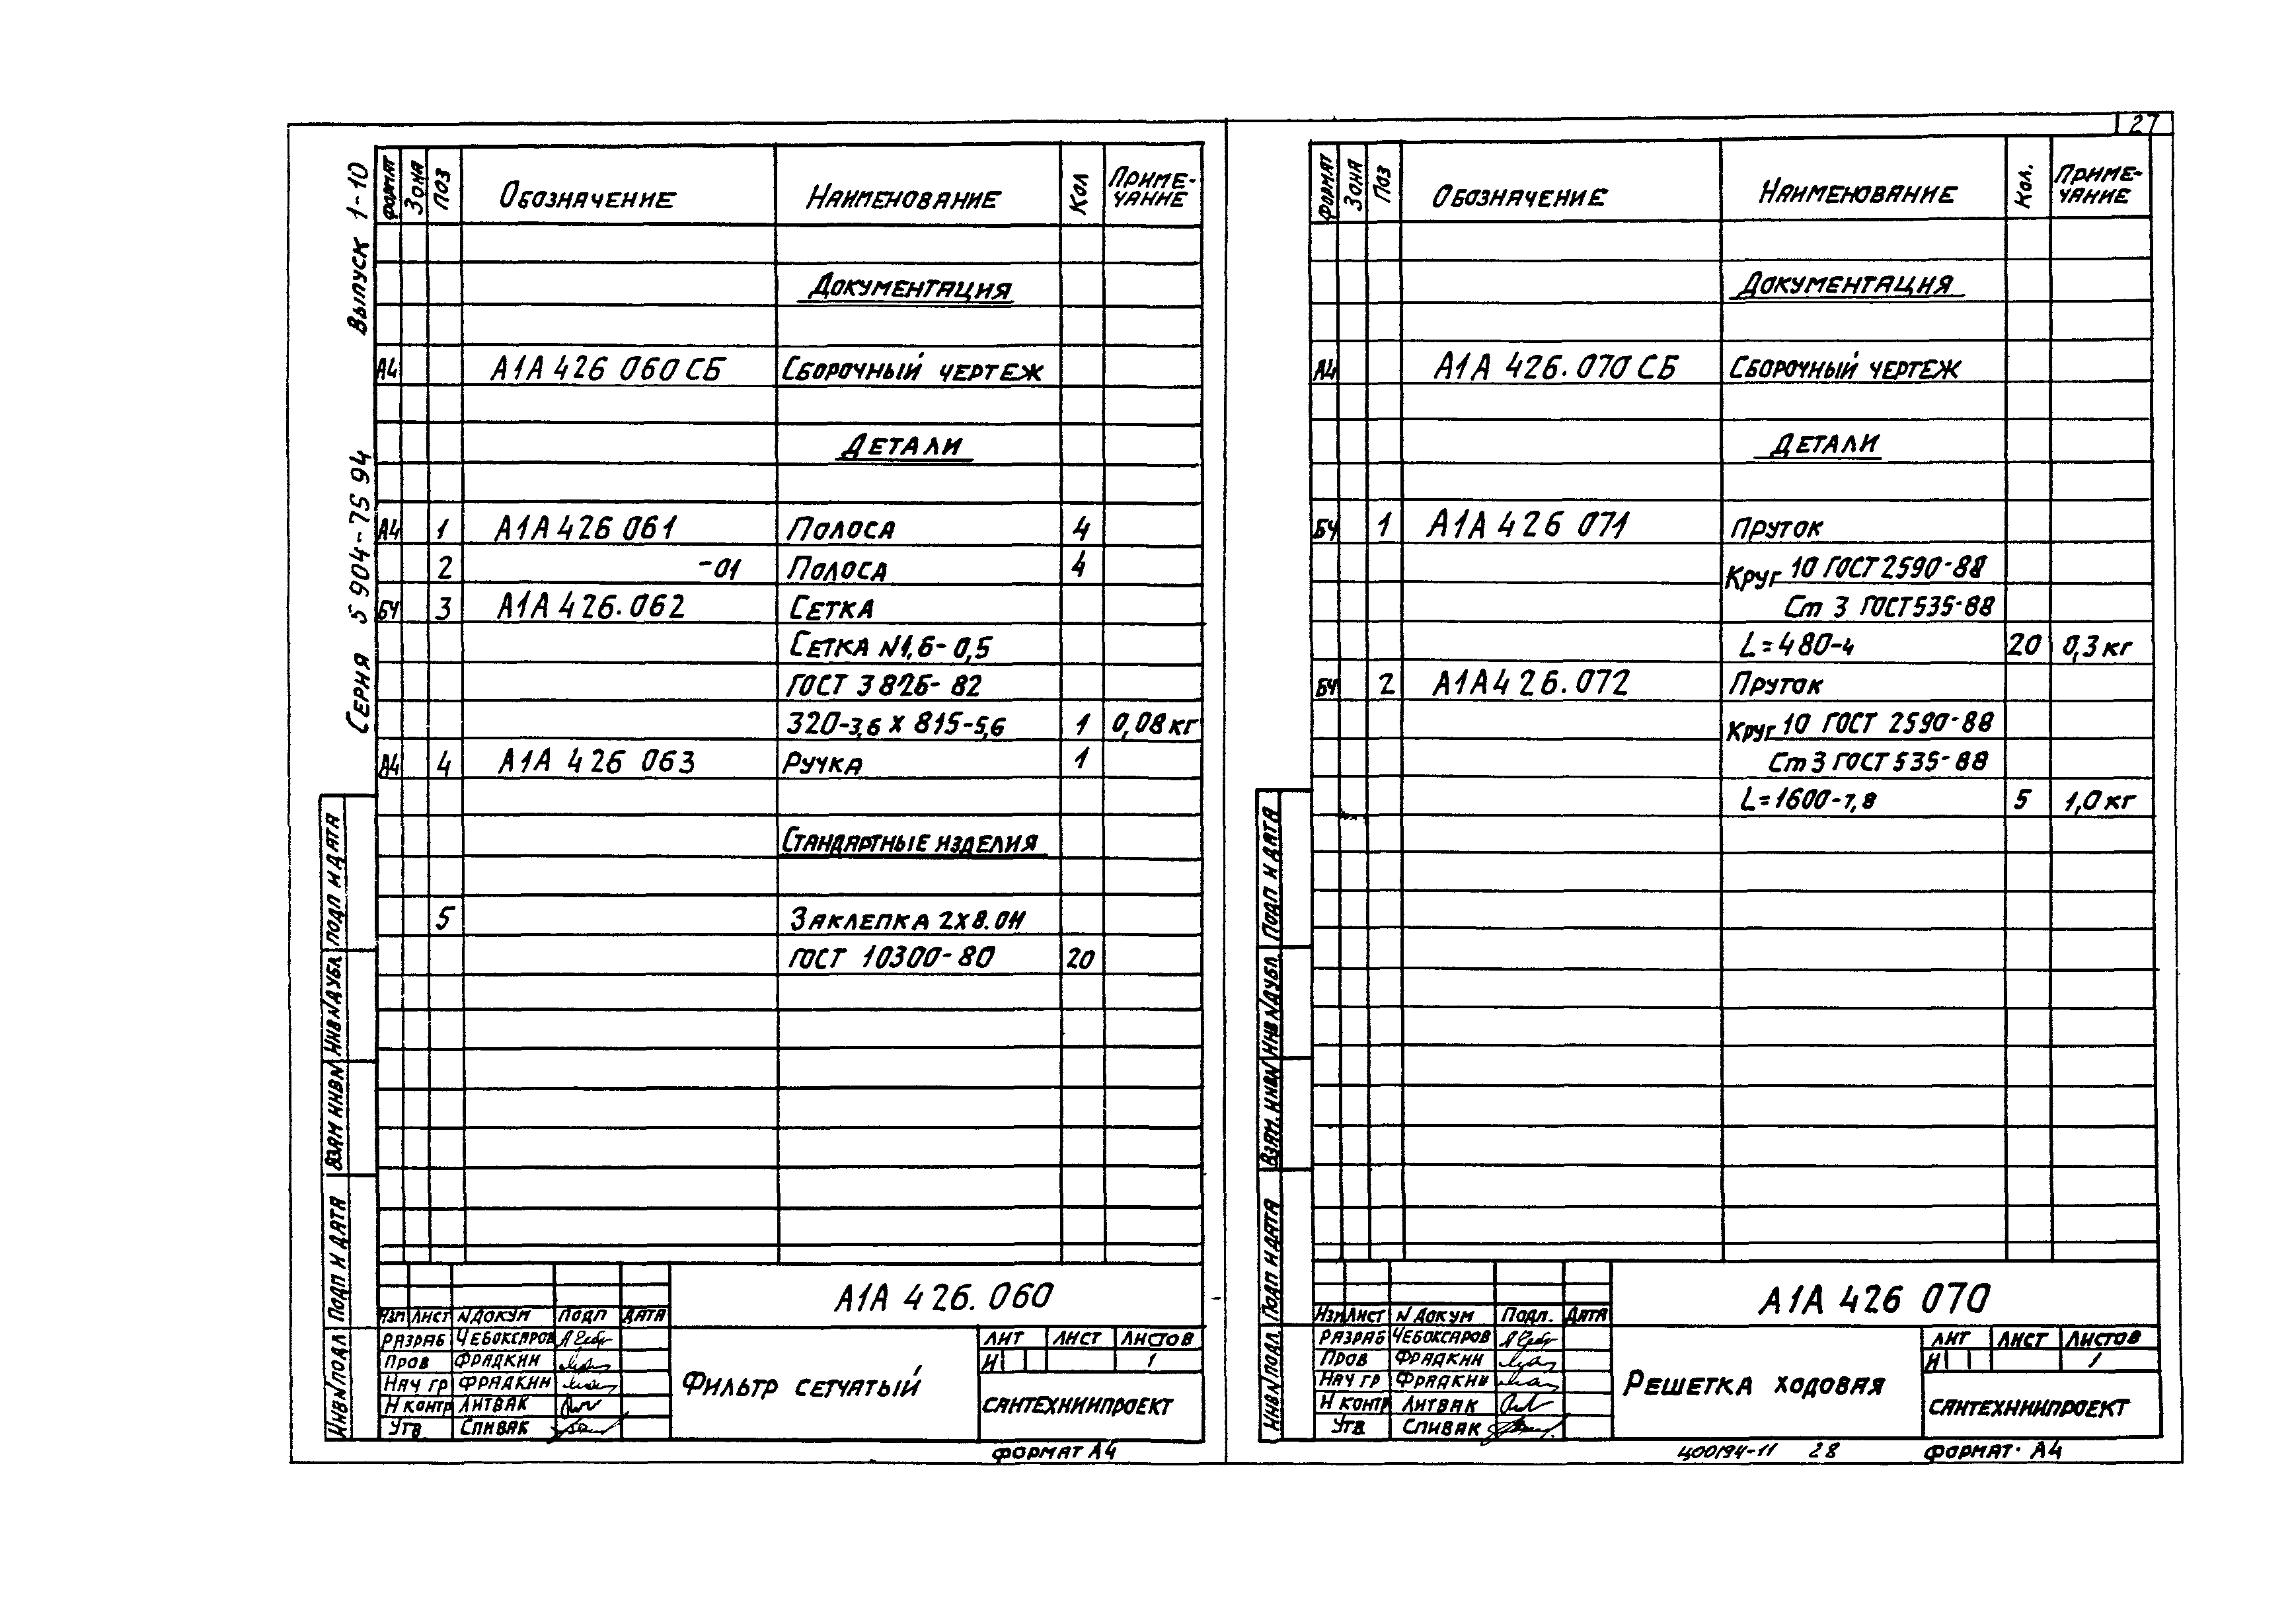 27
Выпуск 1-10
Серия 5 904-75 94
Формат Зона Поз Обозначение Наименование Кол Приме-
чание
Документация
А4 А1А 426 060 СБ Сборочный чертеж
Детали
А4 1 А1А 426 061 Полоса 4
2 -01 Полоса 4
БЧ 3 А1А 426.062 Сетка
Сетка N1,6-0,5
ГОСТ 3826-82
320-3,6 х 815-5,6 1 0,08 кг
А4 4 А1А 426 063 Ручка 1
Стандартные изделия
5 Заклепка 2х8.0Н
ГОСТ 10300-80 20
Подп и дата
Инв N дубл
Взам инв N
Подп и дата
Инв N подл
Изм Лист N докум Подп Дата
Разраб Чебоксаров
Пров Фрадкин
Нач гр Фрадкин
Н контр Литвак
Утв. Спивак
А1А 426.060
Фильтр сетчатый
Лит Лист Листов
И 1
Сантехниипроект
Формат А4
Формат Зона Поз Обозначение Наименование Кол. Приме-
чание
Документация
А4 А1А 426.070 СБ Сборочный чертеж
Детали
БЧ 1 А1А 426 071 Пруток
Круг 10 ГОСТ 2590-88
Ст 3 ГОСТ 535-88
L=480-4 20 0,3 кг
БЧ 2 А1А 426.072 Пруток
Круг 10 ГОСТ 2590-88
Ст 3 ГОСТ 535-88
L=1600-7,8 5 1,0 кг
Подп и дата
Инв N дубл.
Взам. инв N
Подп и дата
Инв N подл
Изм Лист N докум Подл. Дата
Разраб Чебоксаров
Пров Фрадкин
Нач гр Фрадкин
Н контр Литвак
Утв Спивак
А1А 426 070
Решетка ходовая
Лит Лист Листов
И 1
Сантехниипроект
Ц00194-11 28 Формат. А4